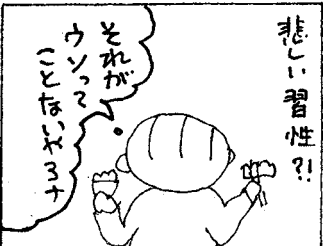 悲しい習性?!
それが
ウソって
ことないやろナ